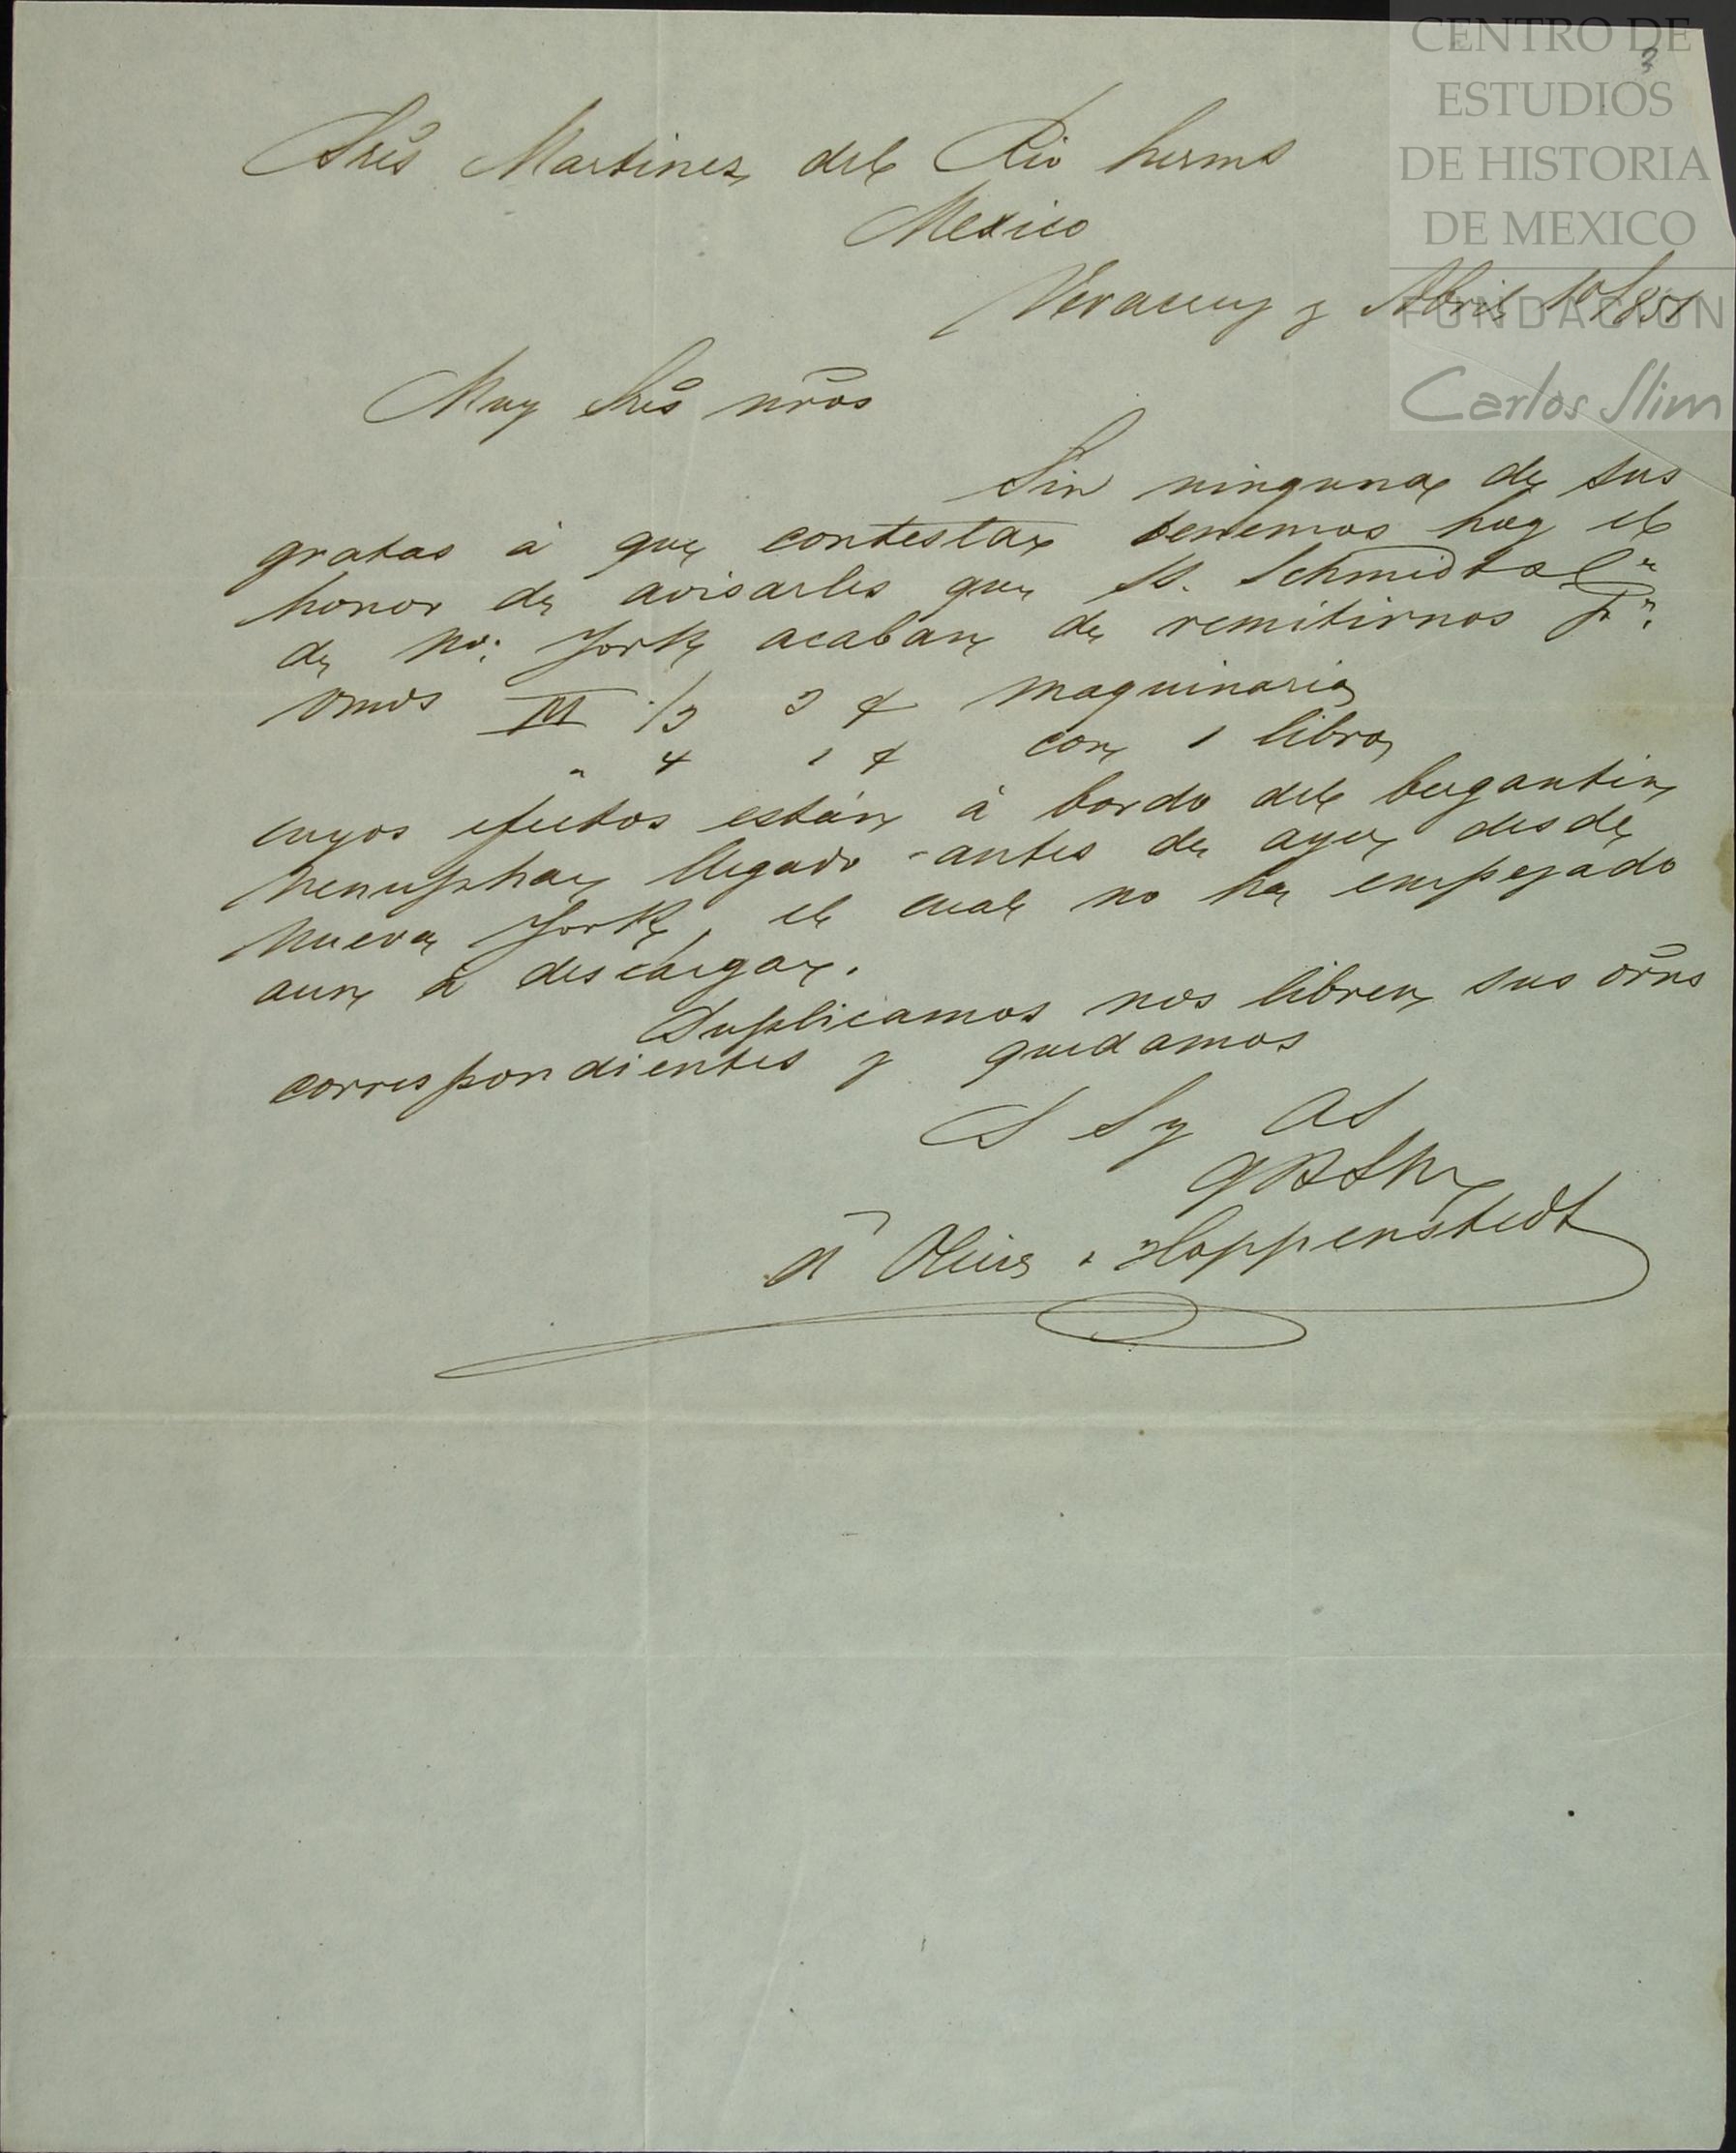 CENTRO DE
ESTUDIOS
DE HISTORIA
DE MEXICO
FUNDACION
Carlos Slim
3
Sres Martinez del Rio herms
Mexico
Veracruz y Abril 10/851
Muy Sres nros
Sin ninguna de sus
gratas à que contestar tenemos hoy el
honor de avisarles que SS. Schmidt & Cª
de Nª York acaban de remitirnos pª
Vmds M 1/3 3 maquinaria
" 4 1 con 1 libro
cuyos efectos están à bordo del bergantin
Nenuphar llegado antes de ayer desde
Nueva York, el cual no ha empezado
aun à descargar.
Suplicamos nos libren sus orns
correspondientes y quedamos
S S y AS
QBSM
d'Oleire & Hoppenstedt